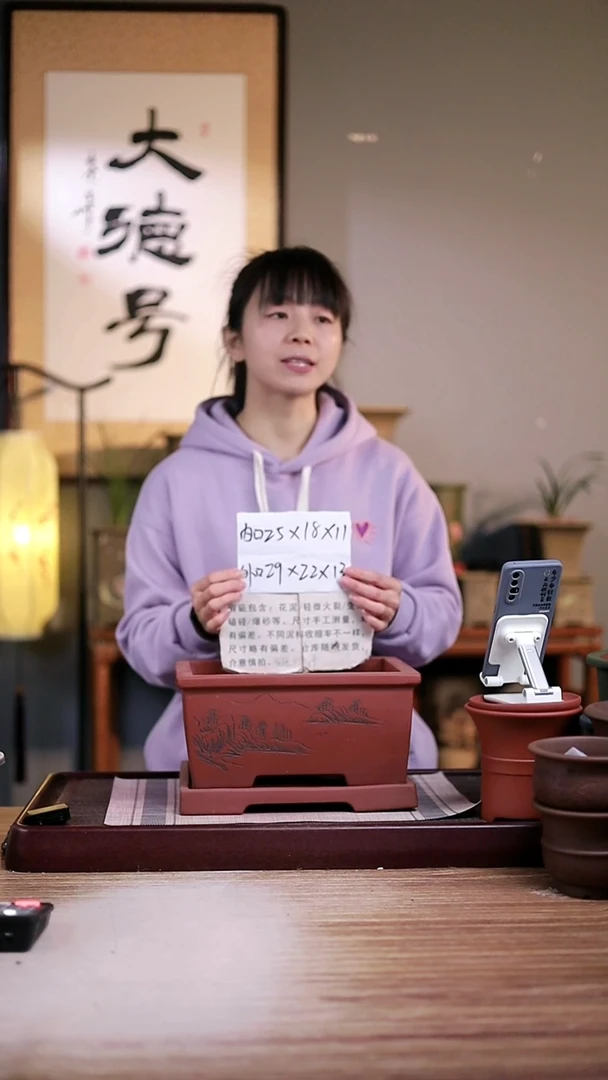 大德号
内口25×18×11
外口29×22×13
有瑕包含：花泥/轻微火裂/
磕碰/爆砂等。尺寸手工测量，
有偏差。不同泥料收缩率不一样
尺寸略有偏差。仓库随机发货，
介意慎拍。